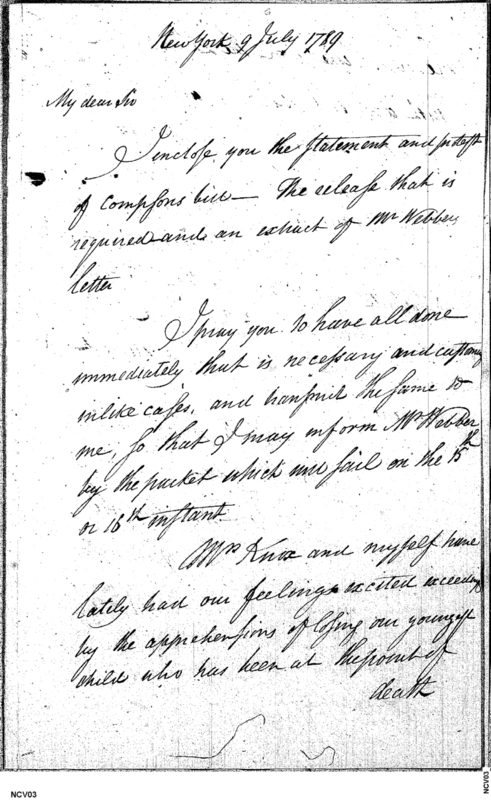 New York 9 July 1789
My dear Sir
I enclose you the statement and protest
of Compsons bill — The release that is
required and an extract of Mr Webbers
letter
I pray you to have all done
immediately that is necessary and customary
in like cases, and transmit the same to
me, so that I may inform Mr Webber
by the packet which will sail on the 15th
or 16th instant.
Mrs Knox and myself have
lately had our feelings excited exceedingly
by the apprehensions of losing our youngest
child who has been at the point of
death
NCV03
NCV03